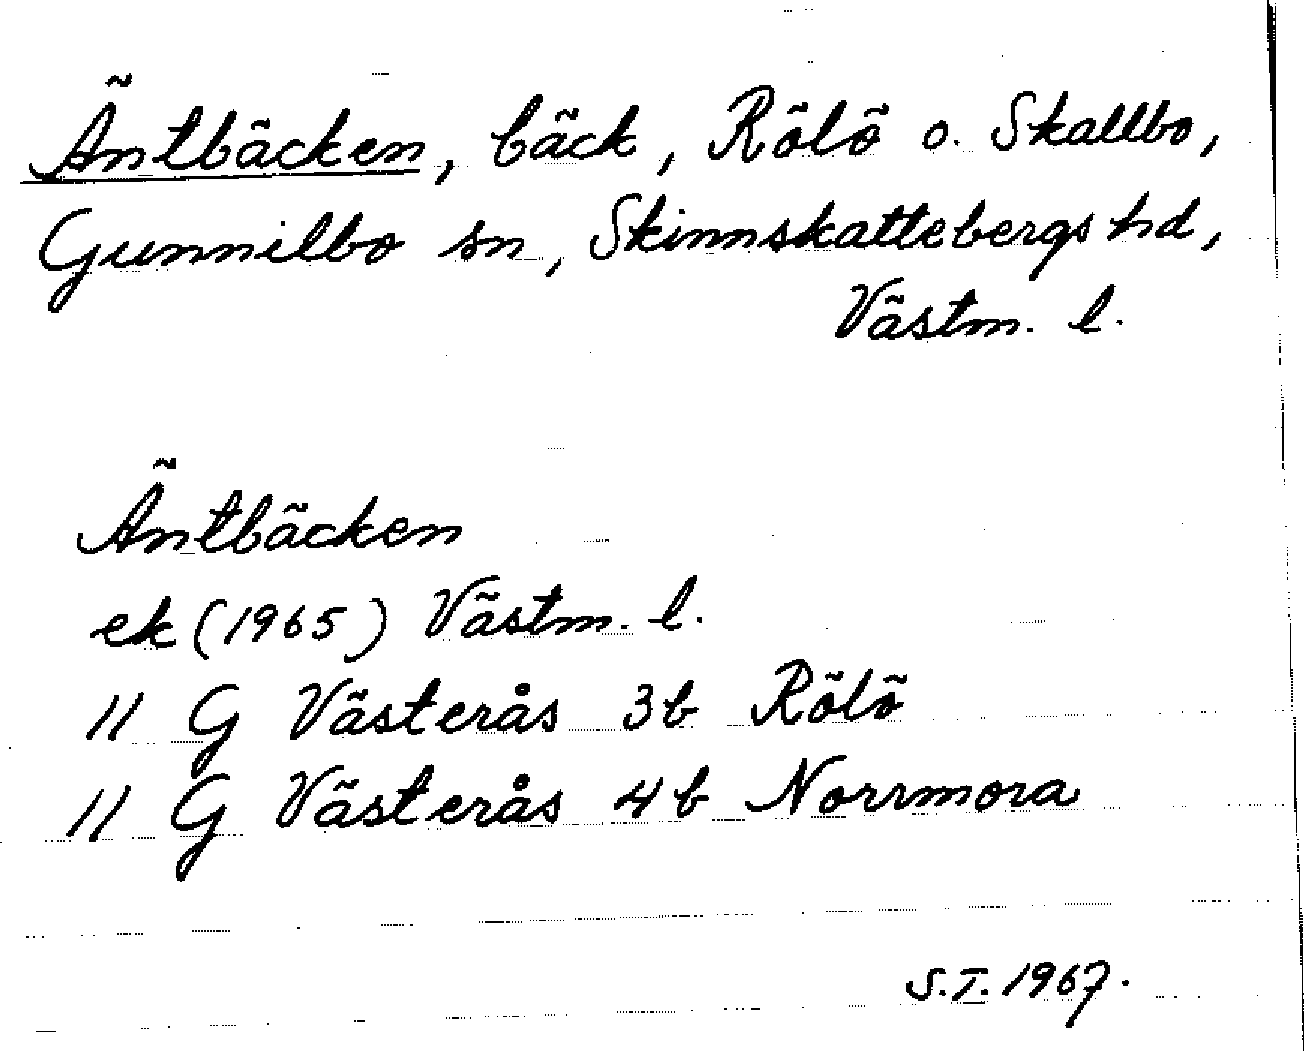 Äntbäcken, bäck, Rölö o. Skallbo,
Gunnilbo sn, Skinnskattebergs hd,
Västm. l.
Äntbäcken
ek (1965) Västm. l.
11 G Västerås 3b Rölö
11 G Västerås 4b Norrmora
S.T. 1967.